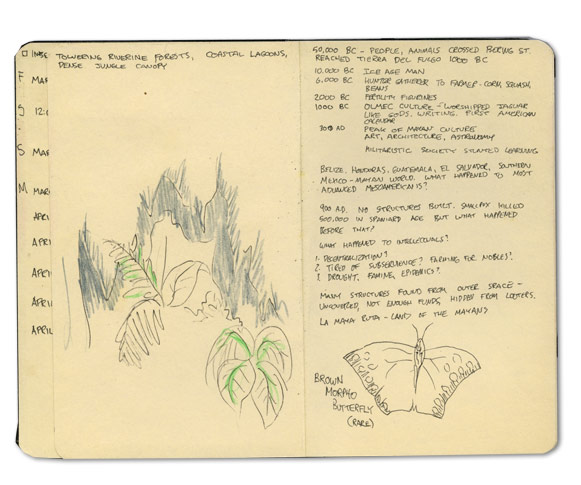 F
S
S
M
MAR
12:
MAR
MAR
APRI
APRI
APRI
APRI
APRIL
TOWERING RIVERINE FORESTS, COASTAL LAGOONS,
DENSE JUNGLE CANOPY
50,000 BC - PEOPLE, ANIMALS CROSSED BERING ST.
REACHED TIERRA DEL FUEGO 1000 BC
10,000 BC ICE AGE MAN
6,000 BC HUNTER GATHERER TO FARMER - CORN, SQUASH,
BEANS
2000 BC FERTILITY FIGURINES
1000 BC OLMEC CULTURE - WORSHIPPED JAGUAR
LIKE GODS, WRITING. FIRST AMERICAN
CALENDAR
AD PEAK OF MAYAN CULTURE
ART, ARCHITECTURE, ASTRONOMY
MILITARISTIC SOCIETY STUNTED LEARNING
BELIZE, HONDURAS, GUATEMALA, EL SALVADOR, SOUTHERN
MEXICO - MAYAN WORLD. WHAT HAPPENED TO MOST
ADVANCED MESOAMERICANS?
900 AD. NO STRUCTURES BUILT. SMALLPOX KILLED
500,000 IN SPANIARD AGE BUT WHAT HAPPENED
BEFORE THAT?
WHAT HAPPENED TO INTELLECTUALS?
1. DECENTRALIZATION?
2. TIRED OF SUBSERVIENCE? FARMING FOR NOBLES?
3. DROUGHT, FAMINE, EPIDEMICS?
MANY STRUCTURES FOUND FROM OUTER SPACE -
UNCOVERED, NOT ENOUGH FUNDS, HIDDEN FROM LOOTERS.
LA MAYA RUTA - LAND OF THE MAYANS
BROWN
MORPHO
BUTTERFLY
(RARE)